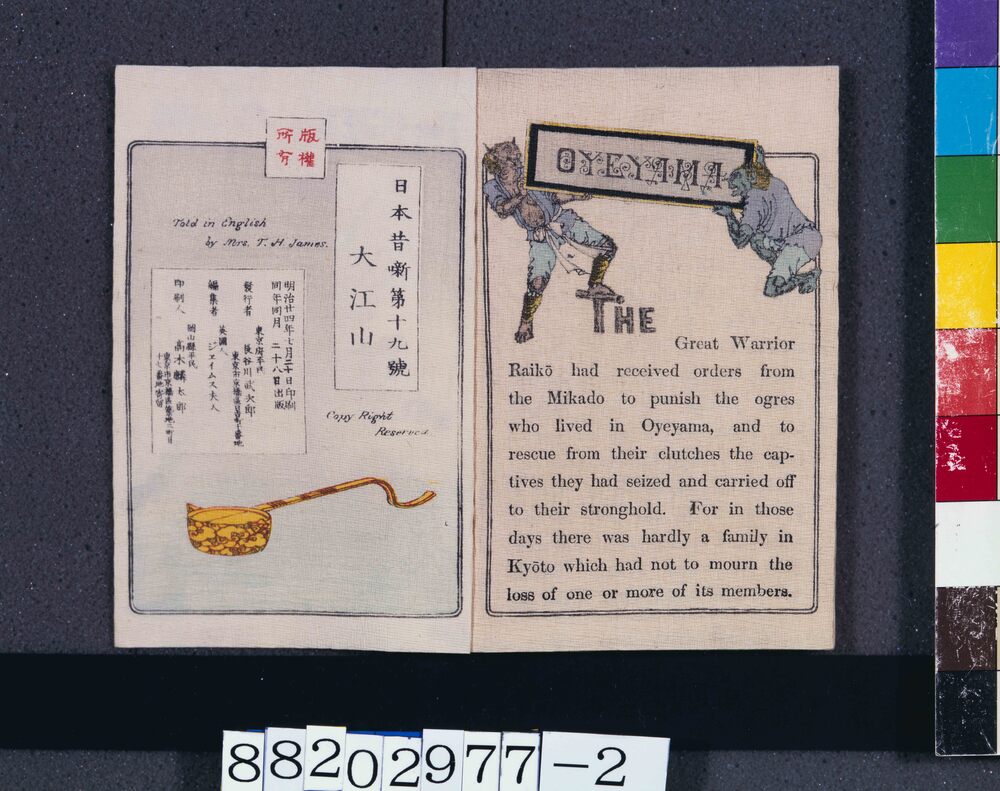 版權
所有
日本昔噺第十九號
大江山
Told in English
by Mrs. T. H. James.
明治廿四年七月二十日印刷
同年同月二十八日出版
東京府平民
發行者 長谷川武次郎
英國人
編集者 ジェイムス夫人
岡山縣平民
印刷人
Copy Right
Reserved
OYEYAMA
THE
Great Warrior
Raikō had received orders from
the Mikado to punish the ogres
who lived in Oyeyama, and to
rescue from their clutches the cap-
tives they had seized and carried off
to their stronghold. For in those
days there was hardly a family in
Kyōto which had not to mourn the
loss of one or more of its members.
88202977-2